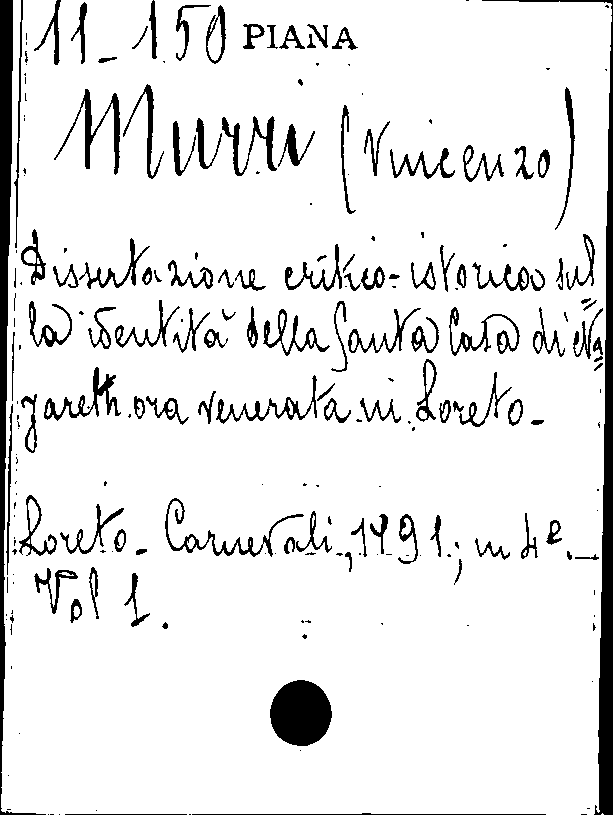 11_150 PIANA
Murri (Vincenzo)
Dissertazione critico-istorica sul=
la identità della Santa Casa di Na=
zareth ora venerata in Loreto_
Loreto_ Carnevali, 1791; in 4º._
Vol 1.